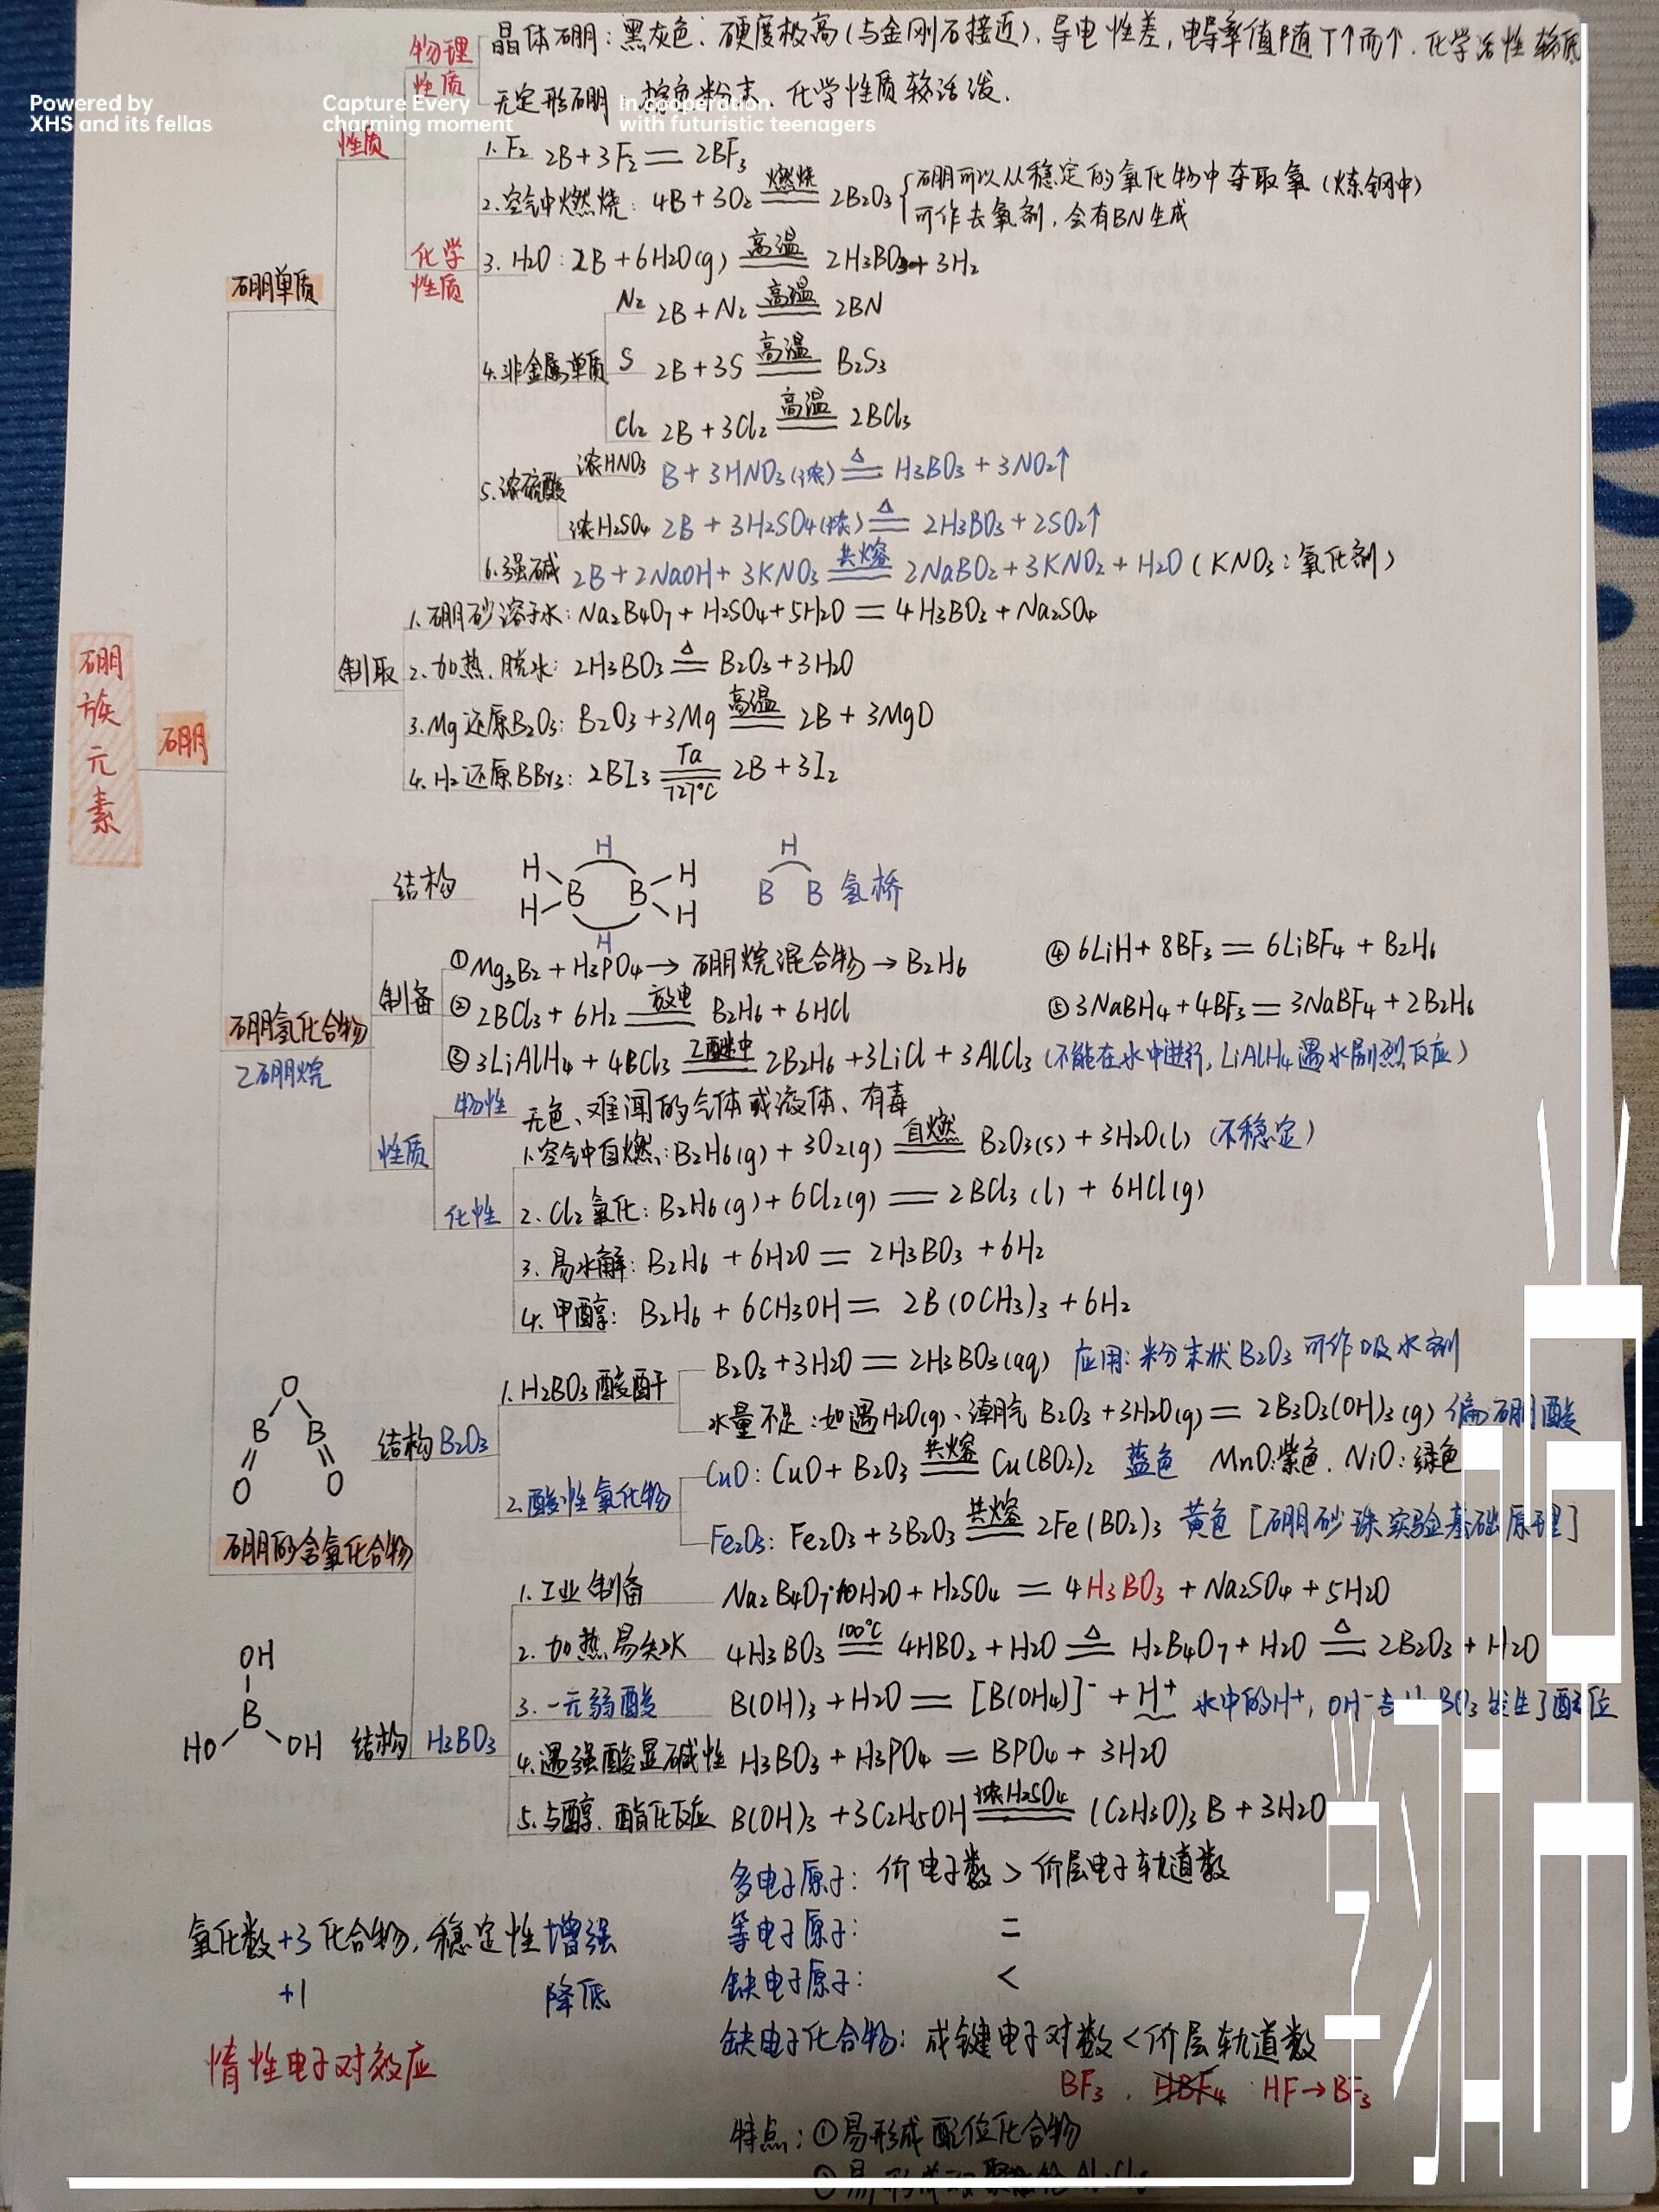 Powered by
XHS and its fellas
Capture Every
charming moment
In cooperation
with futuristic teenagers
硼族元素
硼
硼单质
性质
物理性质
晶体硼：黑灰色．硬度极高（与金刚石接近）、导电性差，电导率值随T↑而↑．化学活性较低
无定形硼 棕色粉末．化学性质较活泼．
化学性质
1. F₂ 2B+3F₂ == 2BF₃
2.空气中燃烧：4B+3O₂ ==燃烧== 2B₂O₃ {硼可以从稳定的氧化物中夺取氧（炼钢中）
可作去氧剂．会有BN生成
3. H₂O：2B+6H₂O(g) ==高温== 2H₃BO₃+3H₂
4.非金属单质
N₂ 2B+N₂ ==高温== 2BN
S 2B+3S ==高温== B₂S₃
Cl₂ 2B+3Cl₂ ==高温== 2BCl₃
5.浓硫酸
浓HNO₃ B+3HNO₃(浓) ==△== H₃BO₃+3NO₂↑
浓H₂SO₄ 2B+3H₂SO₄(浓) ==△== 2H₃BO₃+2SO₂↑
6.强碱 2B+2NaOH+3KNO₃ ==共熔== 2NaBO₂+3KNO₂+H₂O（KNO₃：氧化剂）
制取
1.硼砂溶于水：Na₂B₄O₇+H₂SO₄+5H₂O == 4H₃BO₃+Na₂SO₄
2.加热．脱水：2H₃BO₃ ==△== B₂O₃+3H₂O
3.Mg还原B₂O₃：B₂O₃+3Mg ==高温== 2B+3MgO
4.H₂还原BBr₃：2BI₃ ==Ta 727℃== 2B+3I₂
硼氢化合物
乙硼烷
结构
H H H
B B
H H H
H
B B 氢桥
制备
①Mg₃B₂+H₃PO₄→硼烷混合物→B₂H₆
④6LiH+8BF₃ == 6LiBF₄+B₂H₆
②2BCl₃+6H₂ ==放电== B₂H₆+6HCl
⑤3NaBH₄+4BF₃ == 3NaBF₄+2B₂H₆
③3LiAlH₄+4BCl₃ ==乙醚中== 2B₂H₆+3LiCl+3AlCl₃（不能在水中进行，LiAlH₄遇水剧烈反应）
性质
物性 无色、难闻的气体或液体、有毒
化性
1.空气中自燃：B₂H₆(g)+3O₂(g) ==自燃== B₂O₃(s)+3H₂O(l)（不稳定）
2. Cl₂氧化：B₂H₆(g)+6Cl₂(g) == 2BCl₃(l)+6HCl(g)
3.易水解：B₂H₆+6H₂O == 2H₃BO₃+6H₂
4.甲醇：B₂H₆+6CH₃OH == 2B(OCH₃)₃+6H₂
硼的含氧化合物
O
B B
O O
结构 B₂O₃
1.H₂BO₃酸酐
B₂O₃+3H₂O == 2H₃BO₃(aq) 应用：粉末状B₂O₃可作吸水剂
水量不足：如遇H₂O(g)、潮气 B₂O₃+3H₂O(g) == 2B₃O₃(OH)₃(g) 偏硼酸
2.酸性氧化物
CuO：CuO+B₂O₃ ==共熔== Cu(BO₂)₂ 蓝色 MnO：紫色．NiO：绿色
Fe₂O₃：Fe₂O₃+3B₂O₃ ==共熔== 2Fe(BO₂)₃ 黄色 [硼砂珠实验基础原理]
OH
B
HO OH
结构 H₃BO₃
1.工业制备 Na₂B₄O₇·10H₂O+H₂SO₄ == 4H₃BO₃+Na₂SO₄+5H₂O
2.加热易失水 4H₃BO₃ ==100℃== 4HBO₂+H₂O ==△== H₂B₄O₇+H₂O ==△== 2B₂O₃+H₂O
3.一元弱酸 B(OH)₃+H₂O == [B(OH₄)]⁻+H⁺ 水中的H⁺，OH⁻与H₃BO₃发生了配位
4.遇强酸显碱性 H₃BO₃+H₃PO₄ == BPO₄+3H₂O
5.与醇．酯化反应 B(OH)₃+3C₂H₅OH ==浓H₂SO₄== (C₂H₅O)₃B+3H₂O
多电子原子：价电子数＞价层电子轨道数
等电子原子： =
缺电子原子： <
缺电子化合物：成键电子对数<价层轨道数
BF₃．HBF₄ HF→BF₃
特点：①易形成配位化合物
氧化数+3化合物，稳定性增强
+1 降低
惰性电子对效应